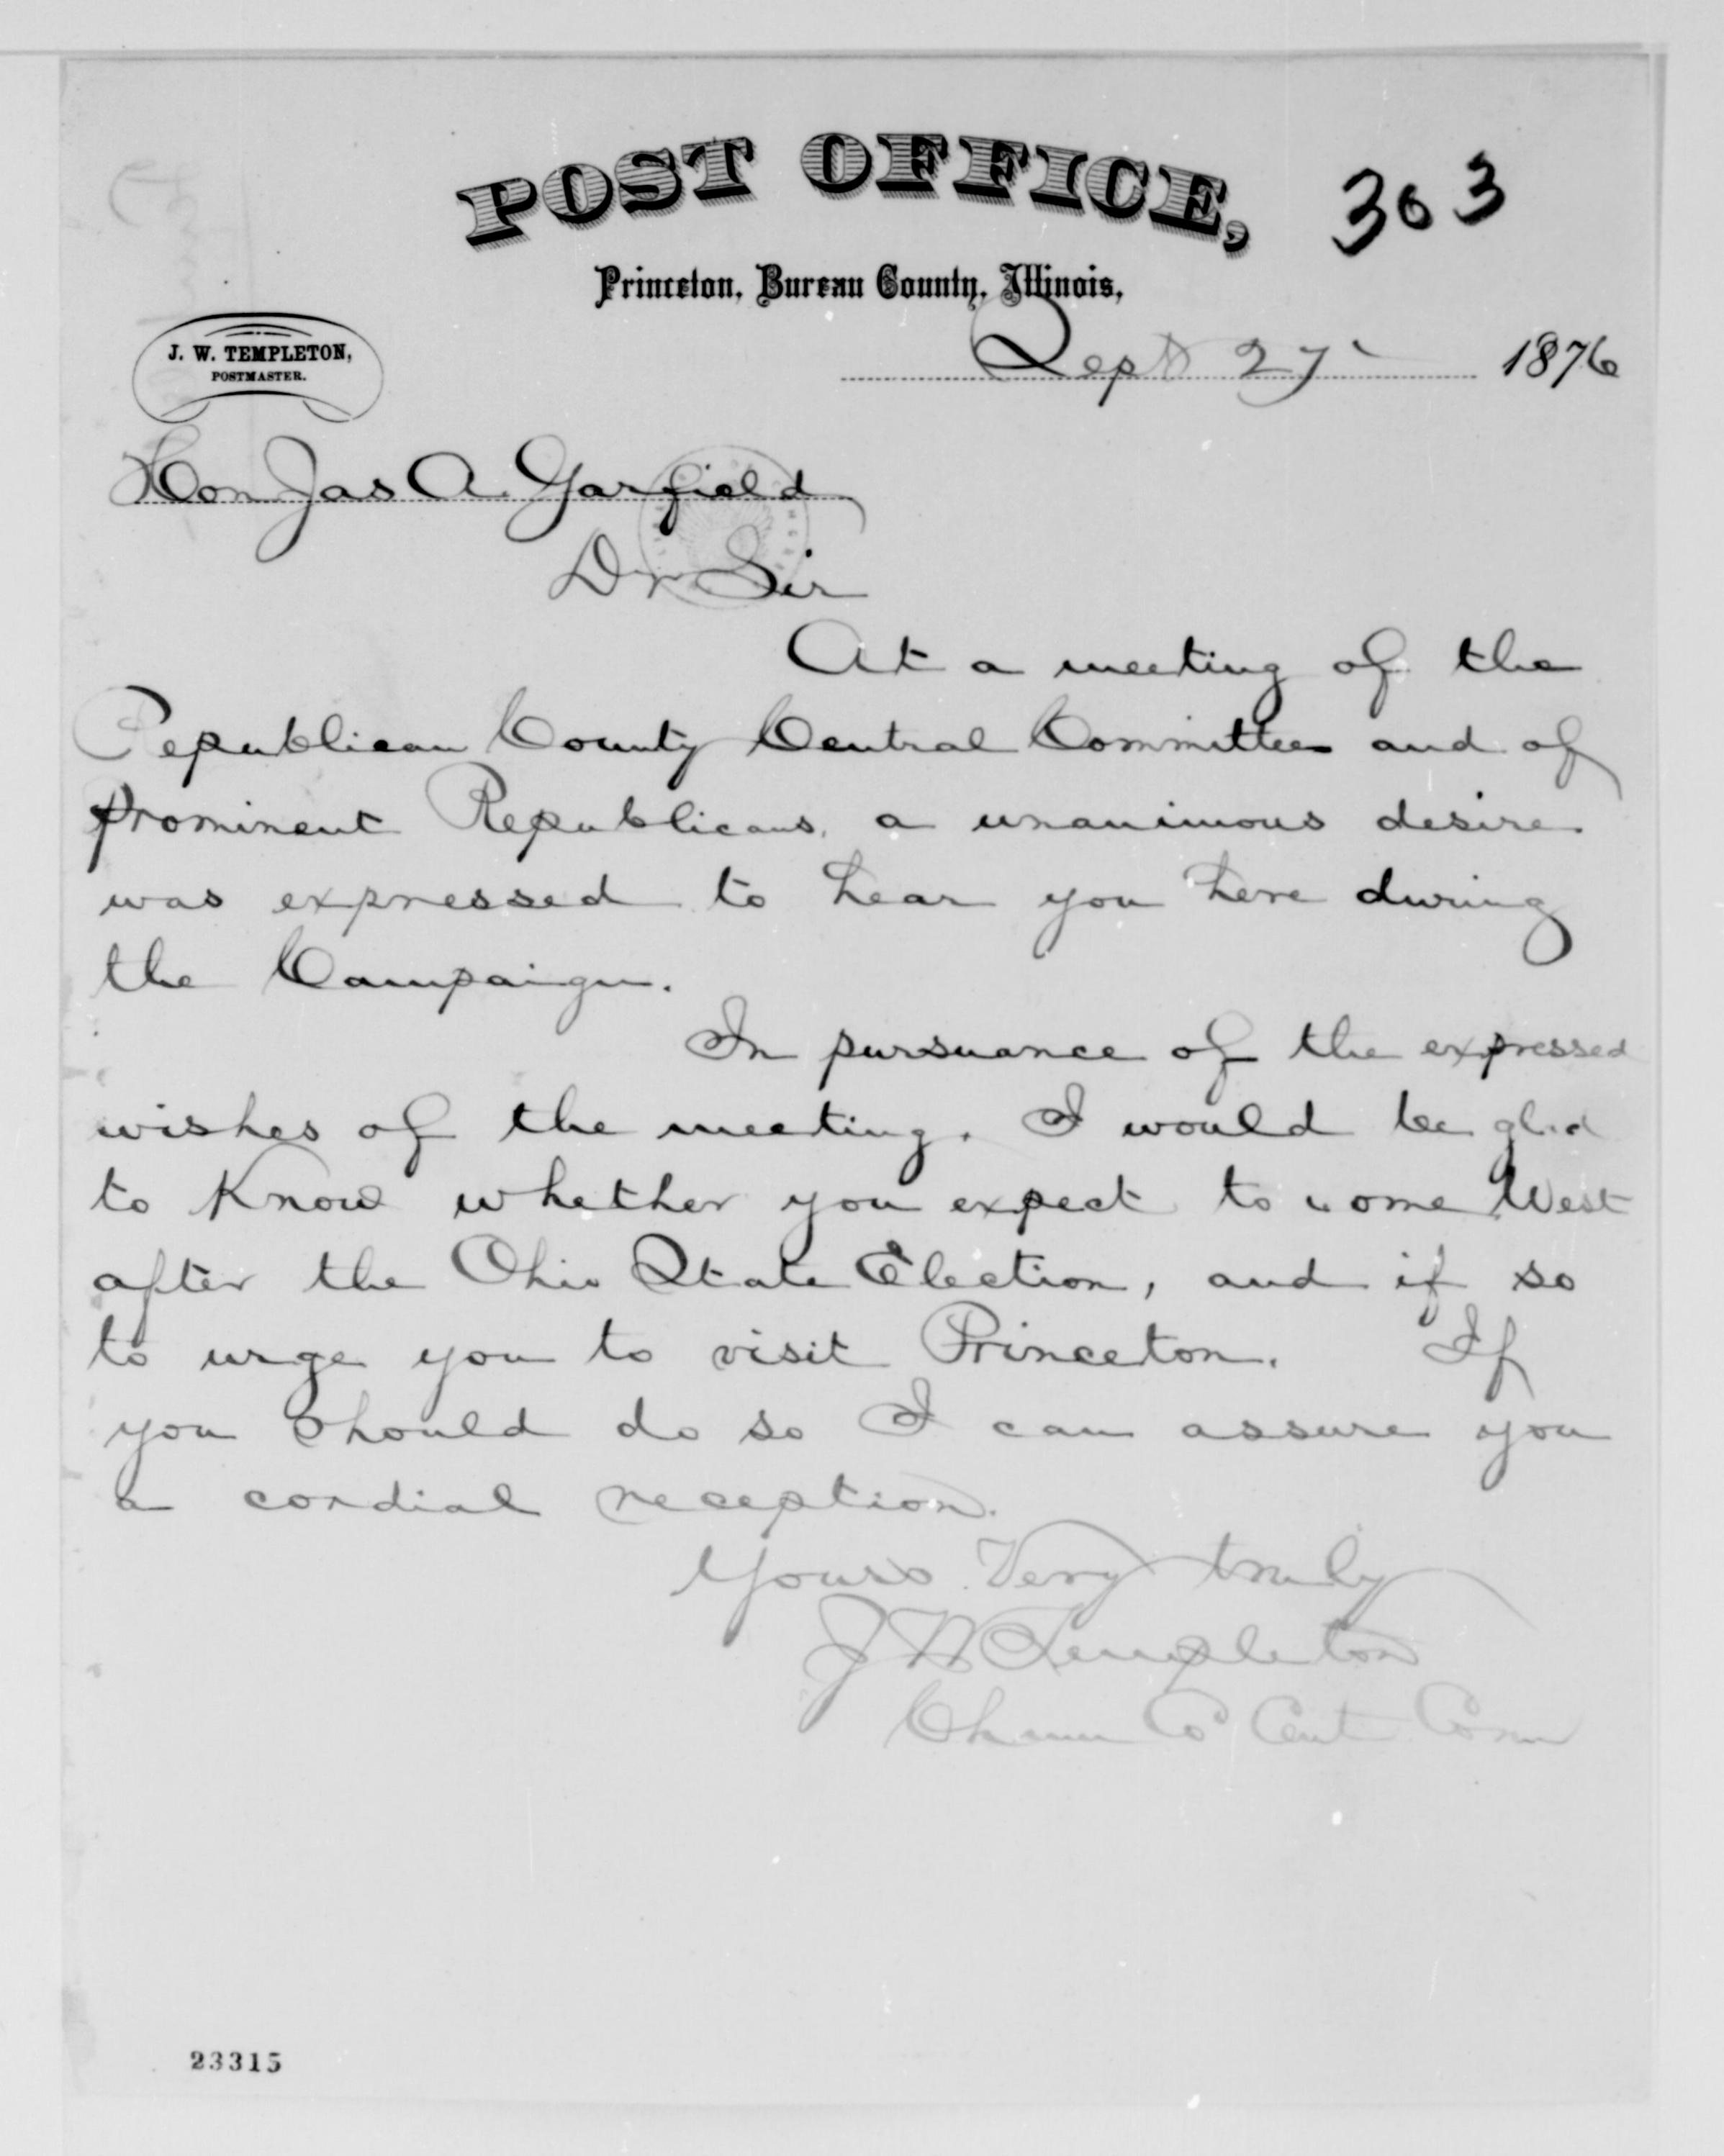 POST OFFICE,
303
Princeton, Bureau County, Illinois,
J. W. TEMPLETON,
POSTMASTER.
Sept 27 1876
Hon Jas A. Garfield
Dr Sir
At a meeting of the
Republican County Central Committee and of
prominent Republicans, a unanimous desire
was expressed to hear you here during
the Campaign.
In pursuance of the expressed
wishes of the meeting, I would be glad
to Know whether you expect to come West
after the Ohio State Election, and if so
to urge you to visit Princeton. If
you should do so I can assure you
a cordial reception.
Yours Very truly
J W Templeton
Chmn Co Cent Com
23315